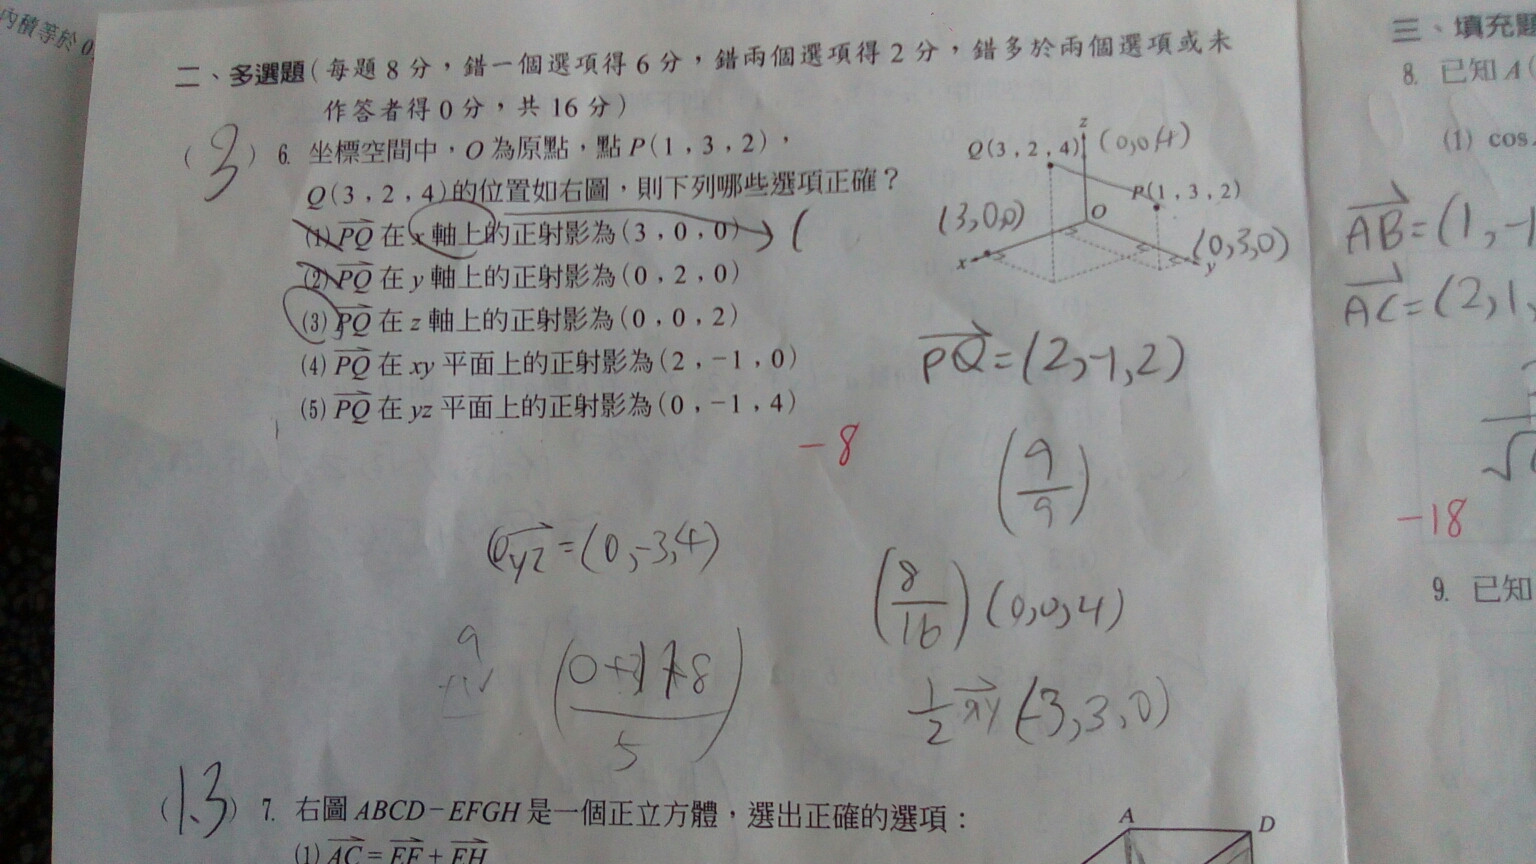 內積等於0
二、多選題(每題8分,錯一個選項得6分,錯兩個選項得2分,錯多於兩個選項或未
作答者得0分,共16分)
(3) 6. 坐標空間中,O為原點,點P(1,3,2),
Q(3,2,4)的位置如右圖,則下列哪些選項正確?
(1) PQ在x軸上的正射影為(3,0,0) (
(2) PQ在y軸上的正射影為(0,2,0)
(3) PQ在z軸上的正射影為(0,0,2)
(4) PQ在xy平面上的正射影為(2,-1,0)
(5) PQ在yz平面上的正射影為(0,-1,4)
z
(0,0,4)
Q(3,2,4)
P(1,3,2)
(3,0,0)
O
(0,3,0)
x
y
PQ=(2,-1,2)
-8
(9/9)
yz=(0,-3,4)
(8/16)(0,0,4)
9
5
1/2 xy(-3,3,0)
(1.3) 7. 右圖ABCD-EFGH是一個正立方體,選出正確的選項:
(1) AC=EF+EH
A
D
三、填充題
8. 已知A(
(1) cos
AB=(1,-1
AC=(2,1,
-18
9. 已知